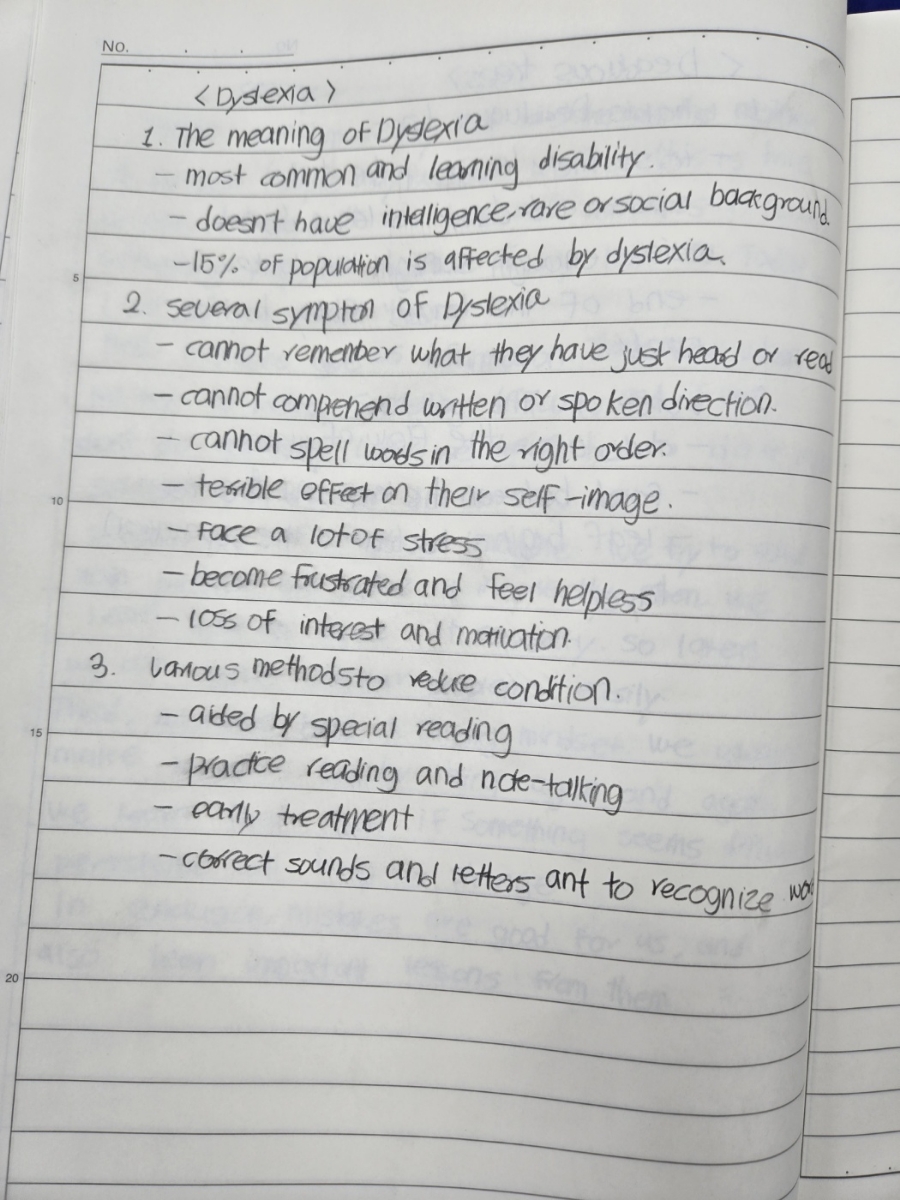 No.
<Dyslexia>
1. The meaning of Dyslexia
- most common and learning disability.
- doesn't have intelligence, rare or social background.
5
- 15% of population is affected by dyslexia.
2. several sympton of Dyslexia
- cannot remember what they have just heard or read
- cannot comprehend written or spoken direction.
- cannot spell words in the right order.
10
- terrible effect on their self-image.
- face a lot of stress
- become frustrated and feel helpless
- loss of interest and motivation.
3. various methods to reduce condition.
15
- aided by special reading
- practice reading and note-talking
- early treatment
- correct sounds and letters ant to recognize
20